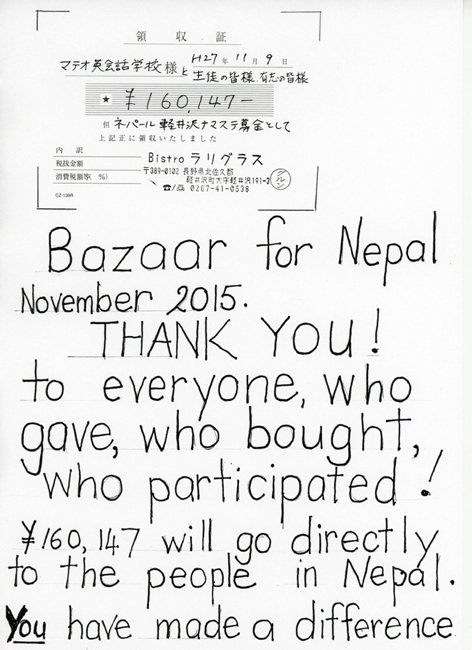 領収証
マテオ英会話学校様と生徒の皆様 有志の皆様
H27年11月9日
★ ¥160,147-
但 ネパール軽井沢ナマステ募金として
上記正に領収いたしました
内訳
税抜金額
消費税額等( %)
Bistro ラリグラス
〒389-0102 長野県北佐久郡
軽井沢町大字軽井沢191-3
☎/📠 0267-41-0538
CZ-139R
Bazaar for Nepal
November 2015.
THANK YOU!
to everyone, who
gave, who bought,
who participated!
¥160,147 will go directly
to the people in Nepal.
You have made a difference